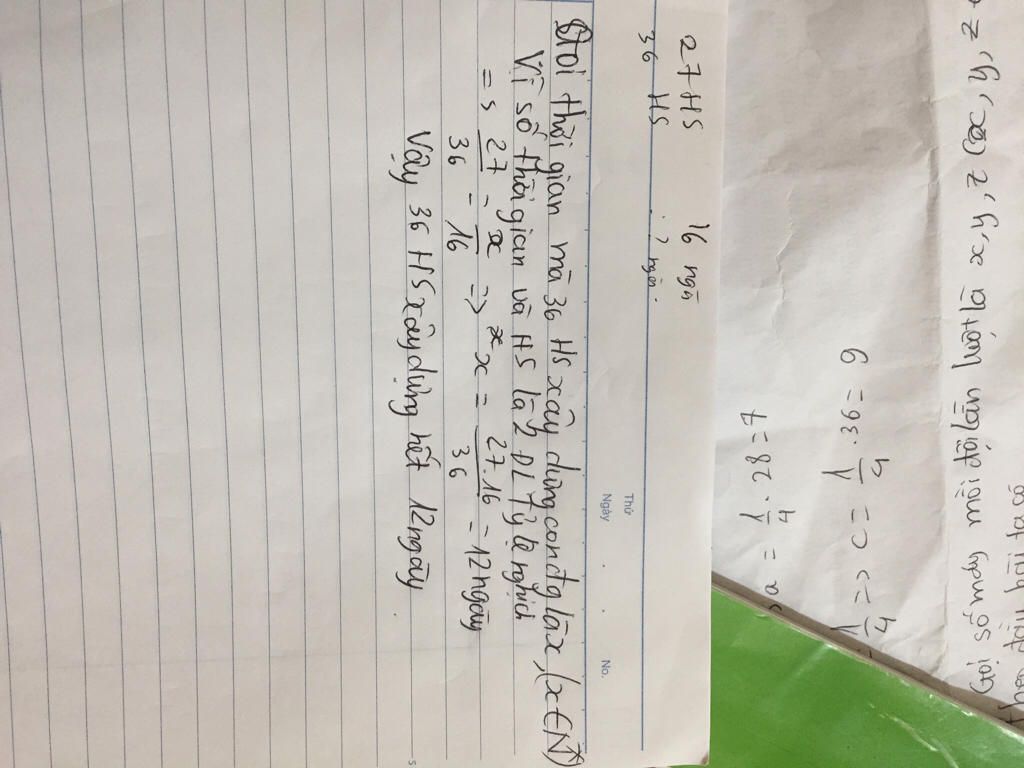 Gọi số máy mỗi đội lần lượt là x, y, z
theo đầu bài ta có
1/4 => c = 1/4 . 36 = 9
a = 1/4 . 28 = 7
27 HS 16 ngà
36 HS ? ngàn.
Thứ
Ngày . . No.
Gọi thời gian mà 36 HS xây dựng con đg là x, (x ∈ N*)
Vì số thời gian và HS là 2 ĐL tỷ lệ nghịch
=> 27/36 = x/16 => x = 27.16/36 = 12 ngày
Vậy 36 HS xây dựng hết 12 ngày.
5